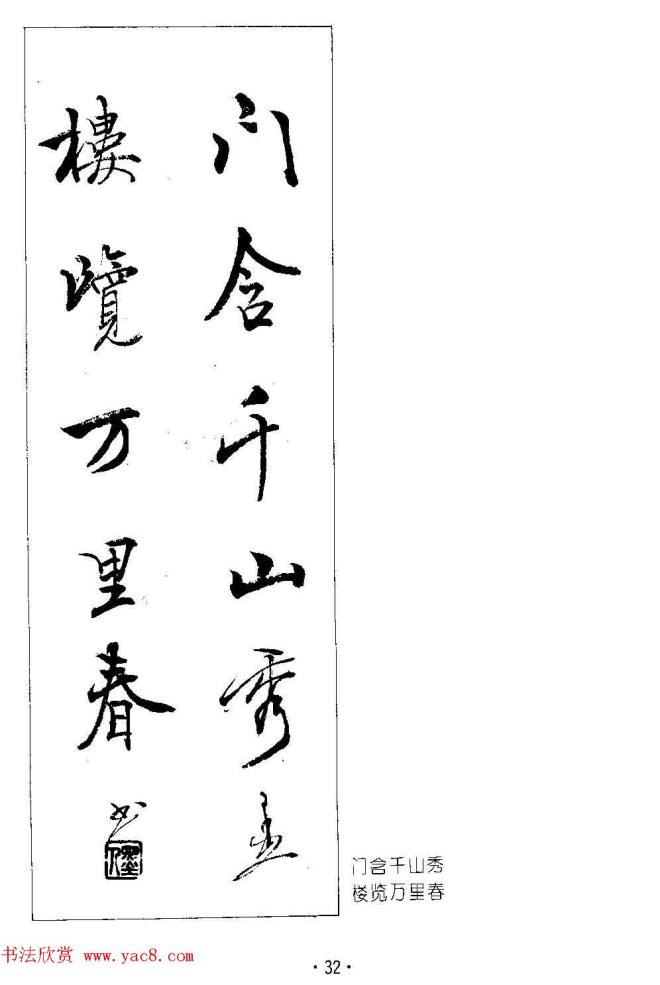 门含千山秀
樓覽万里春
书
门含千山秀
楼览万里春
书法欣赏 www.yac8.com
·32·